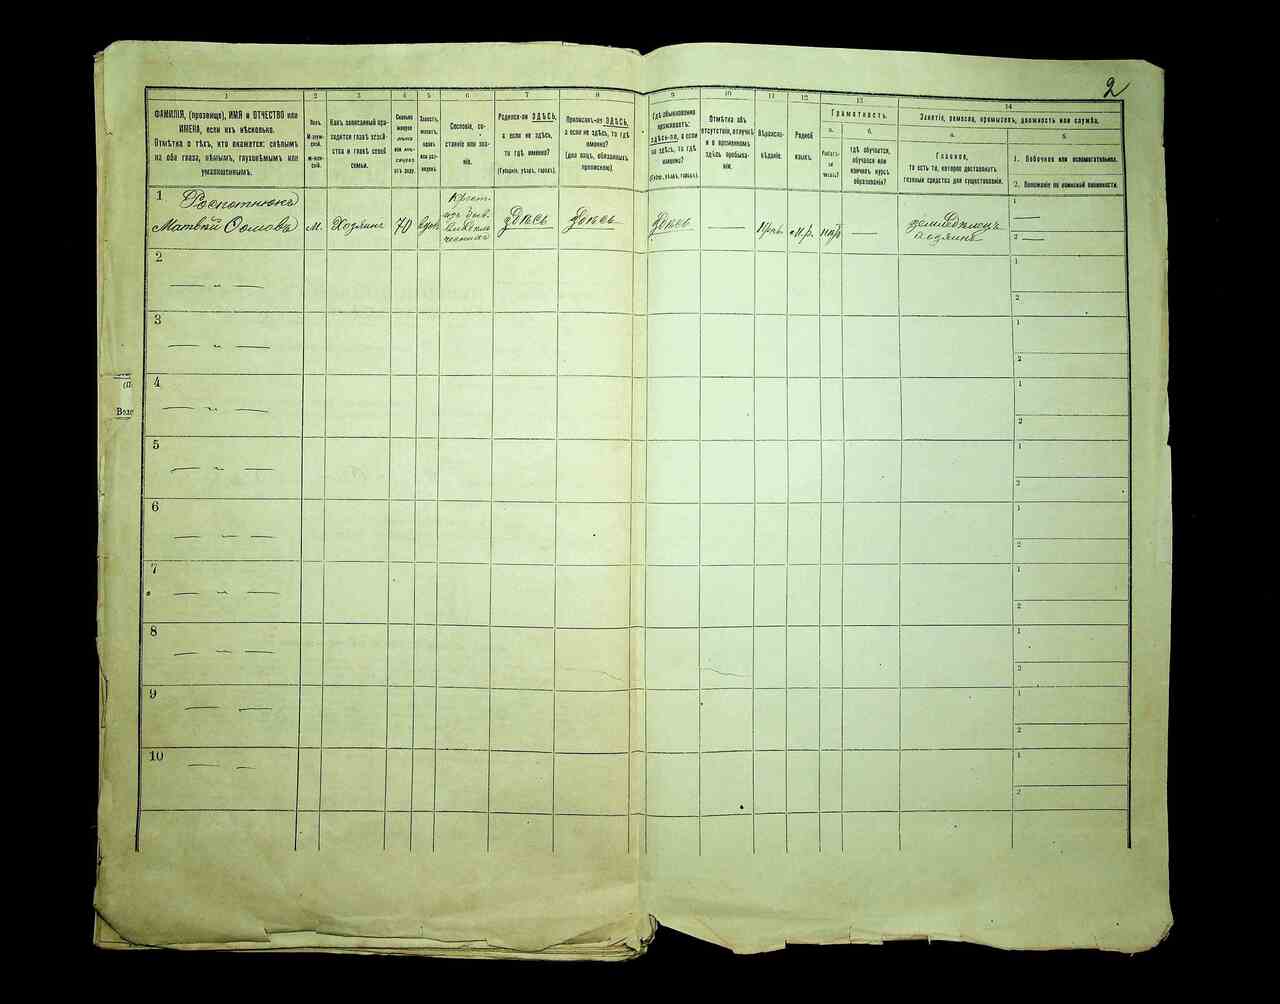 2
1
2
3
4
5
6
7
8
9
10
11
12
13
14
ФАМИЛІЯ, (прозвище), ИМЯ и ОТЧЕСТВО или
ИМЕНА, если ихъ нѣсколько.
Отмѣтка о тѣхъ, кто окажется: слѣпымъ
на оба глаза, нѣмымъ, глухонѣмымъ или
умалишеннымъ.
Полъ.
М-муж-
ской.
Ж-жен-
скій.
Какъ записанный при-
ходится главѣ хозяй-
ства и главѣ своей
семьи.
Сколько
минуло
лѣтъ
или мѣ-
сяцевъ
отъ роду.
Холостъ,
женатъ,
вдовъ
или раз-
веденъ.
Сословіе, со-
стояніе или зва-
ніе.
Родился-ли ЗДѢСЬ,
а если не здѣсь,
то гдѣ именно?
(Губернія, уѣздъ, городъ).
Приписанъ-ли ЗДѢСЬ,
а если не здѣсь, то гдѣ
именно?
(Для лицъ, обязанныхъ
припискою).
Гдѣ обыкновенно
проживаетъ:
здѣсь-ли, а если
не здѣсь, то гдѣ
именно?
(Губер., уѣздъ, городъ).
Отмѣтка объ
отсутствіи, отлучкѣ
и о временномъ
здѣсь пребыва-
ніи.
Вѣроиспо-
вѣданіе.
Родной
языкъ.
Грамотность.
а.
Умѣетъ-
ли
читать?
б.
гдѣ обучается,
обучался или
кончилъ курсъ
образованія?
Занятіе, ремесло, промыселъ, должность или служба.
а.
Главное,
то есть то, которое доставляетъ
главныя средства для существованія.
б.
1. Побочное или вспомогательное.
2. Положеніе по воинской повинности.
1
Матвѣй
м.
Хозяинъ
70
вдовъ
Крест.
изъ
здѣсь
здѣсь
здѣсь
—
—
земледѣлецъ
хозяинъ
1
—
2 —
2
— „ —
1
2
3
— „ —
1
2
4
— „ —
1
2
5
— „ —
1
2
6
— „ —
1
2
7
— „ —
1
2
8
— „ —
1
2
9
— —
1
2
10
— —
1
2
Воло